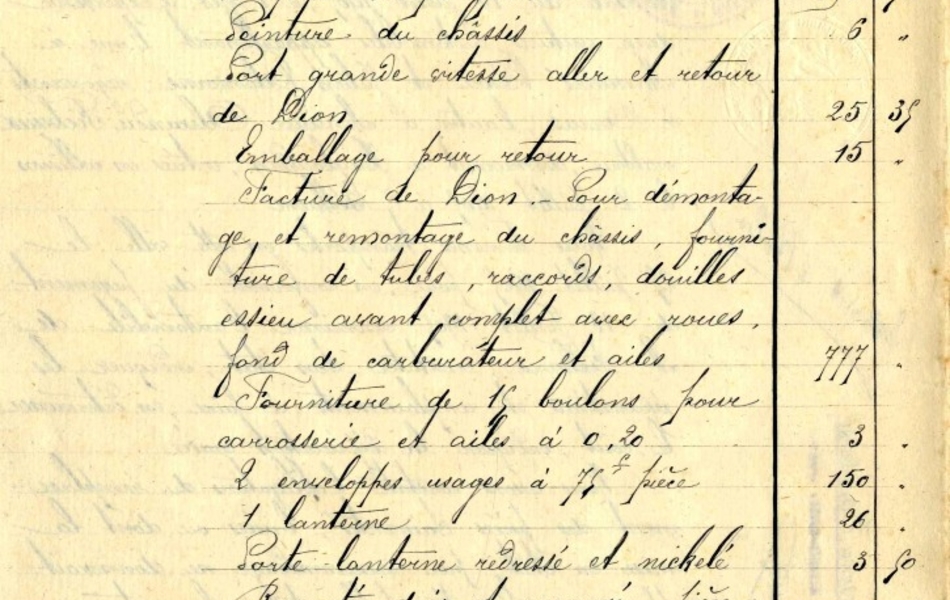 Peinture du châssis 6 "
Port grande vitesse aller et retour
de Dion 25 35
Emballage pour retour 15 "
Facture de Dion. - Pour démonta-
ge et remontage du châssis, fourni-
ture de tubes, raccords, douilles
essieu avant complet avec roues,
fond de carburateur et ailes 777 "
Fourniture de 15 boulons pour
carrosserie et ailes à 0,20 3 "
2 enveloppes usages à 75f pièce 150 "
1 lanterne 26 "
Porte-lanterne redressé et nickelé 3 50